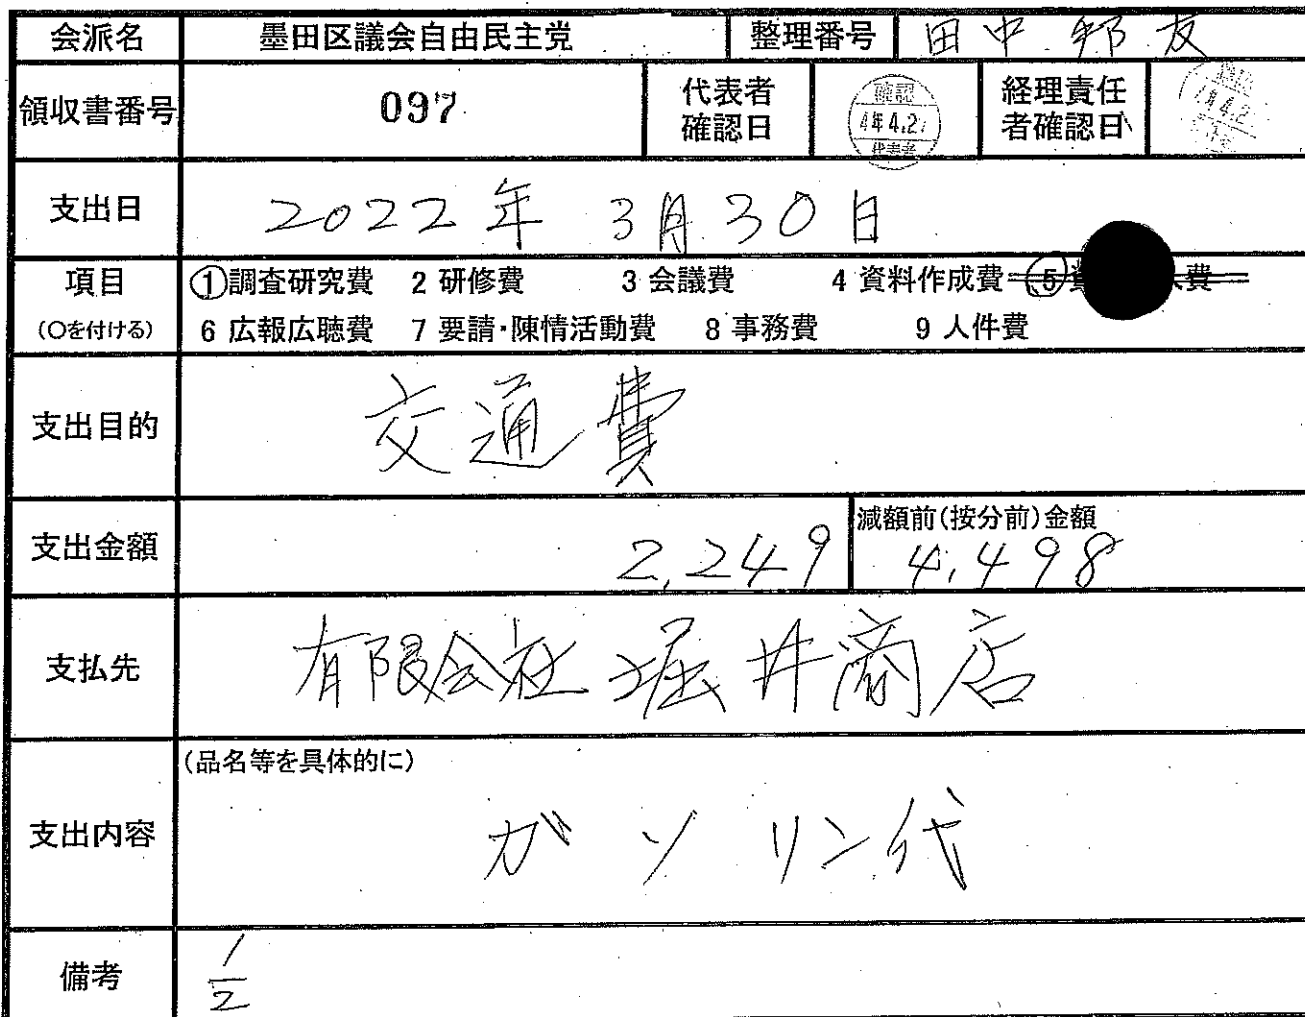 会派名 墨田区議会自由民主党 整理番号 田中邦友
領収書番号 097 代表者確認日 確認 4年4.2 代表者 経理責任者確認日 4.2
支出日 2022年 3月30日
項目 ①調査研究費 2 研修費 3 会議費 4 資料作成費 ⑤資 費
(○を付ける) 6 広報広聴費 7 要請・陳情活動費 8 事務費 9 人件費
支出目的 交通費
支出金額 2,249 減額前(按分前)金額 4,498
支払先 有限会社 堀井商店
(品名等を具体的に)
支出内容 ガソリン代
備考 1/2